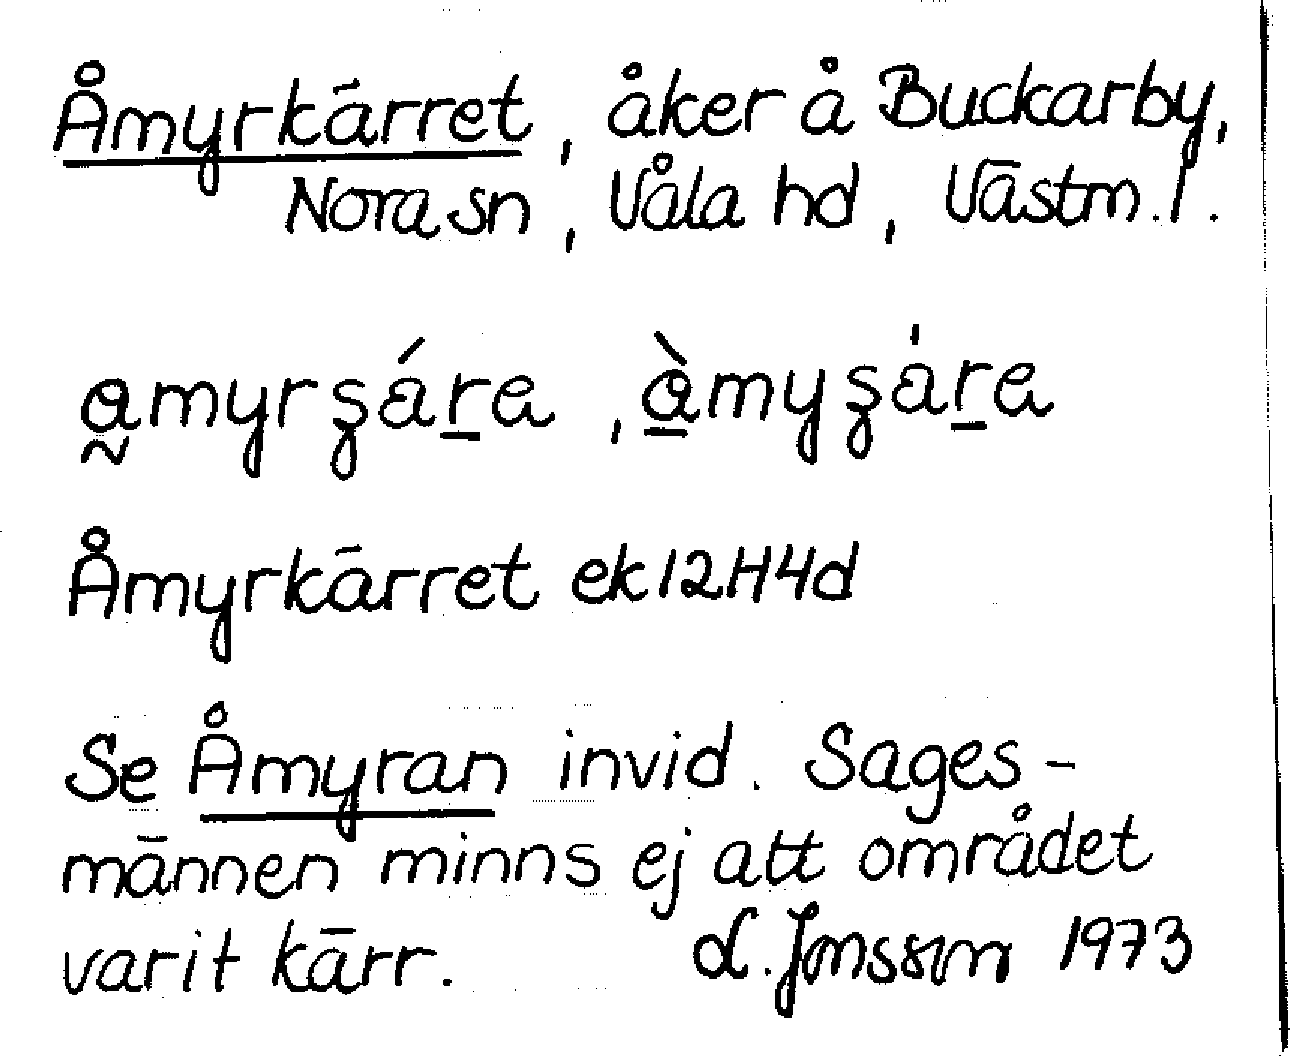 Åmyrkärret, åker å Buckarby,
Nora sn, Våla hd, Västm. l.
Åmyrkärret ek 12H4d
Se Åmyran invid. Sages-
männen minns ej att området
varit kärr. Jonsson 1973